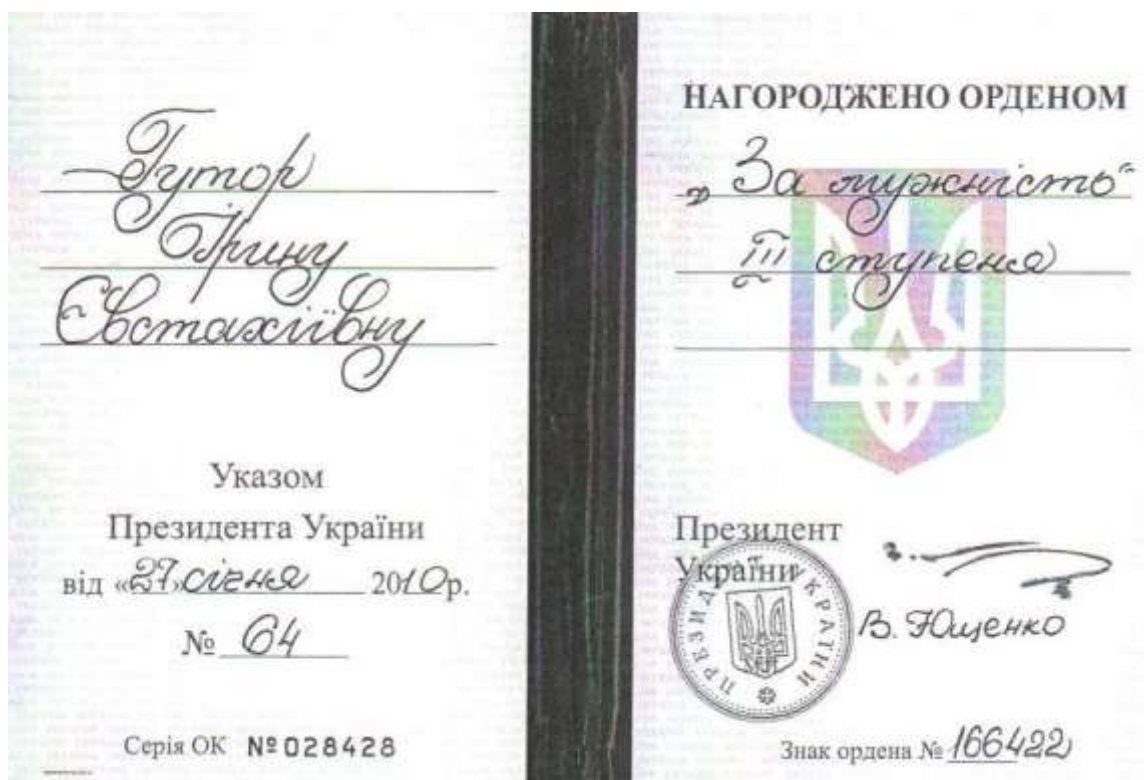 Гутор
Ірину
Євстахіївну
Указом
Президента України
від «27» січня 2010р.
№ 64
Серія ОК №028428
НАГОРОДЖЕНО ОРДЕНОМ
„За мужність"
III ступеня
Президент
України
ПРЕЗИДЕНТ УКРАЇНИ
В. Ющенко
Знак ордена № 166422